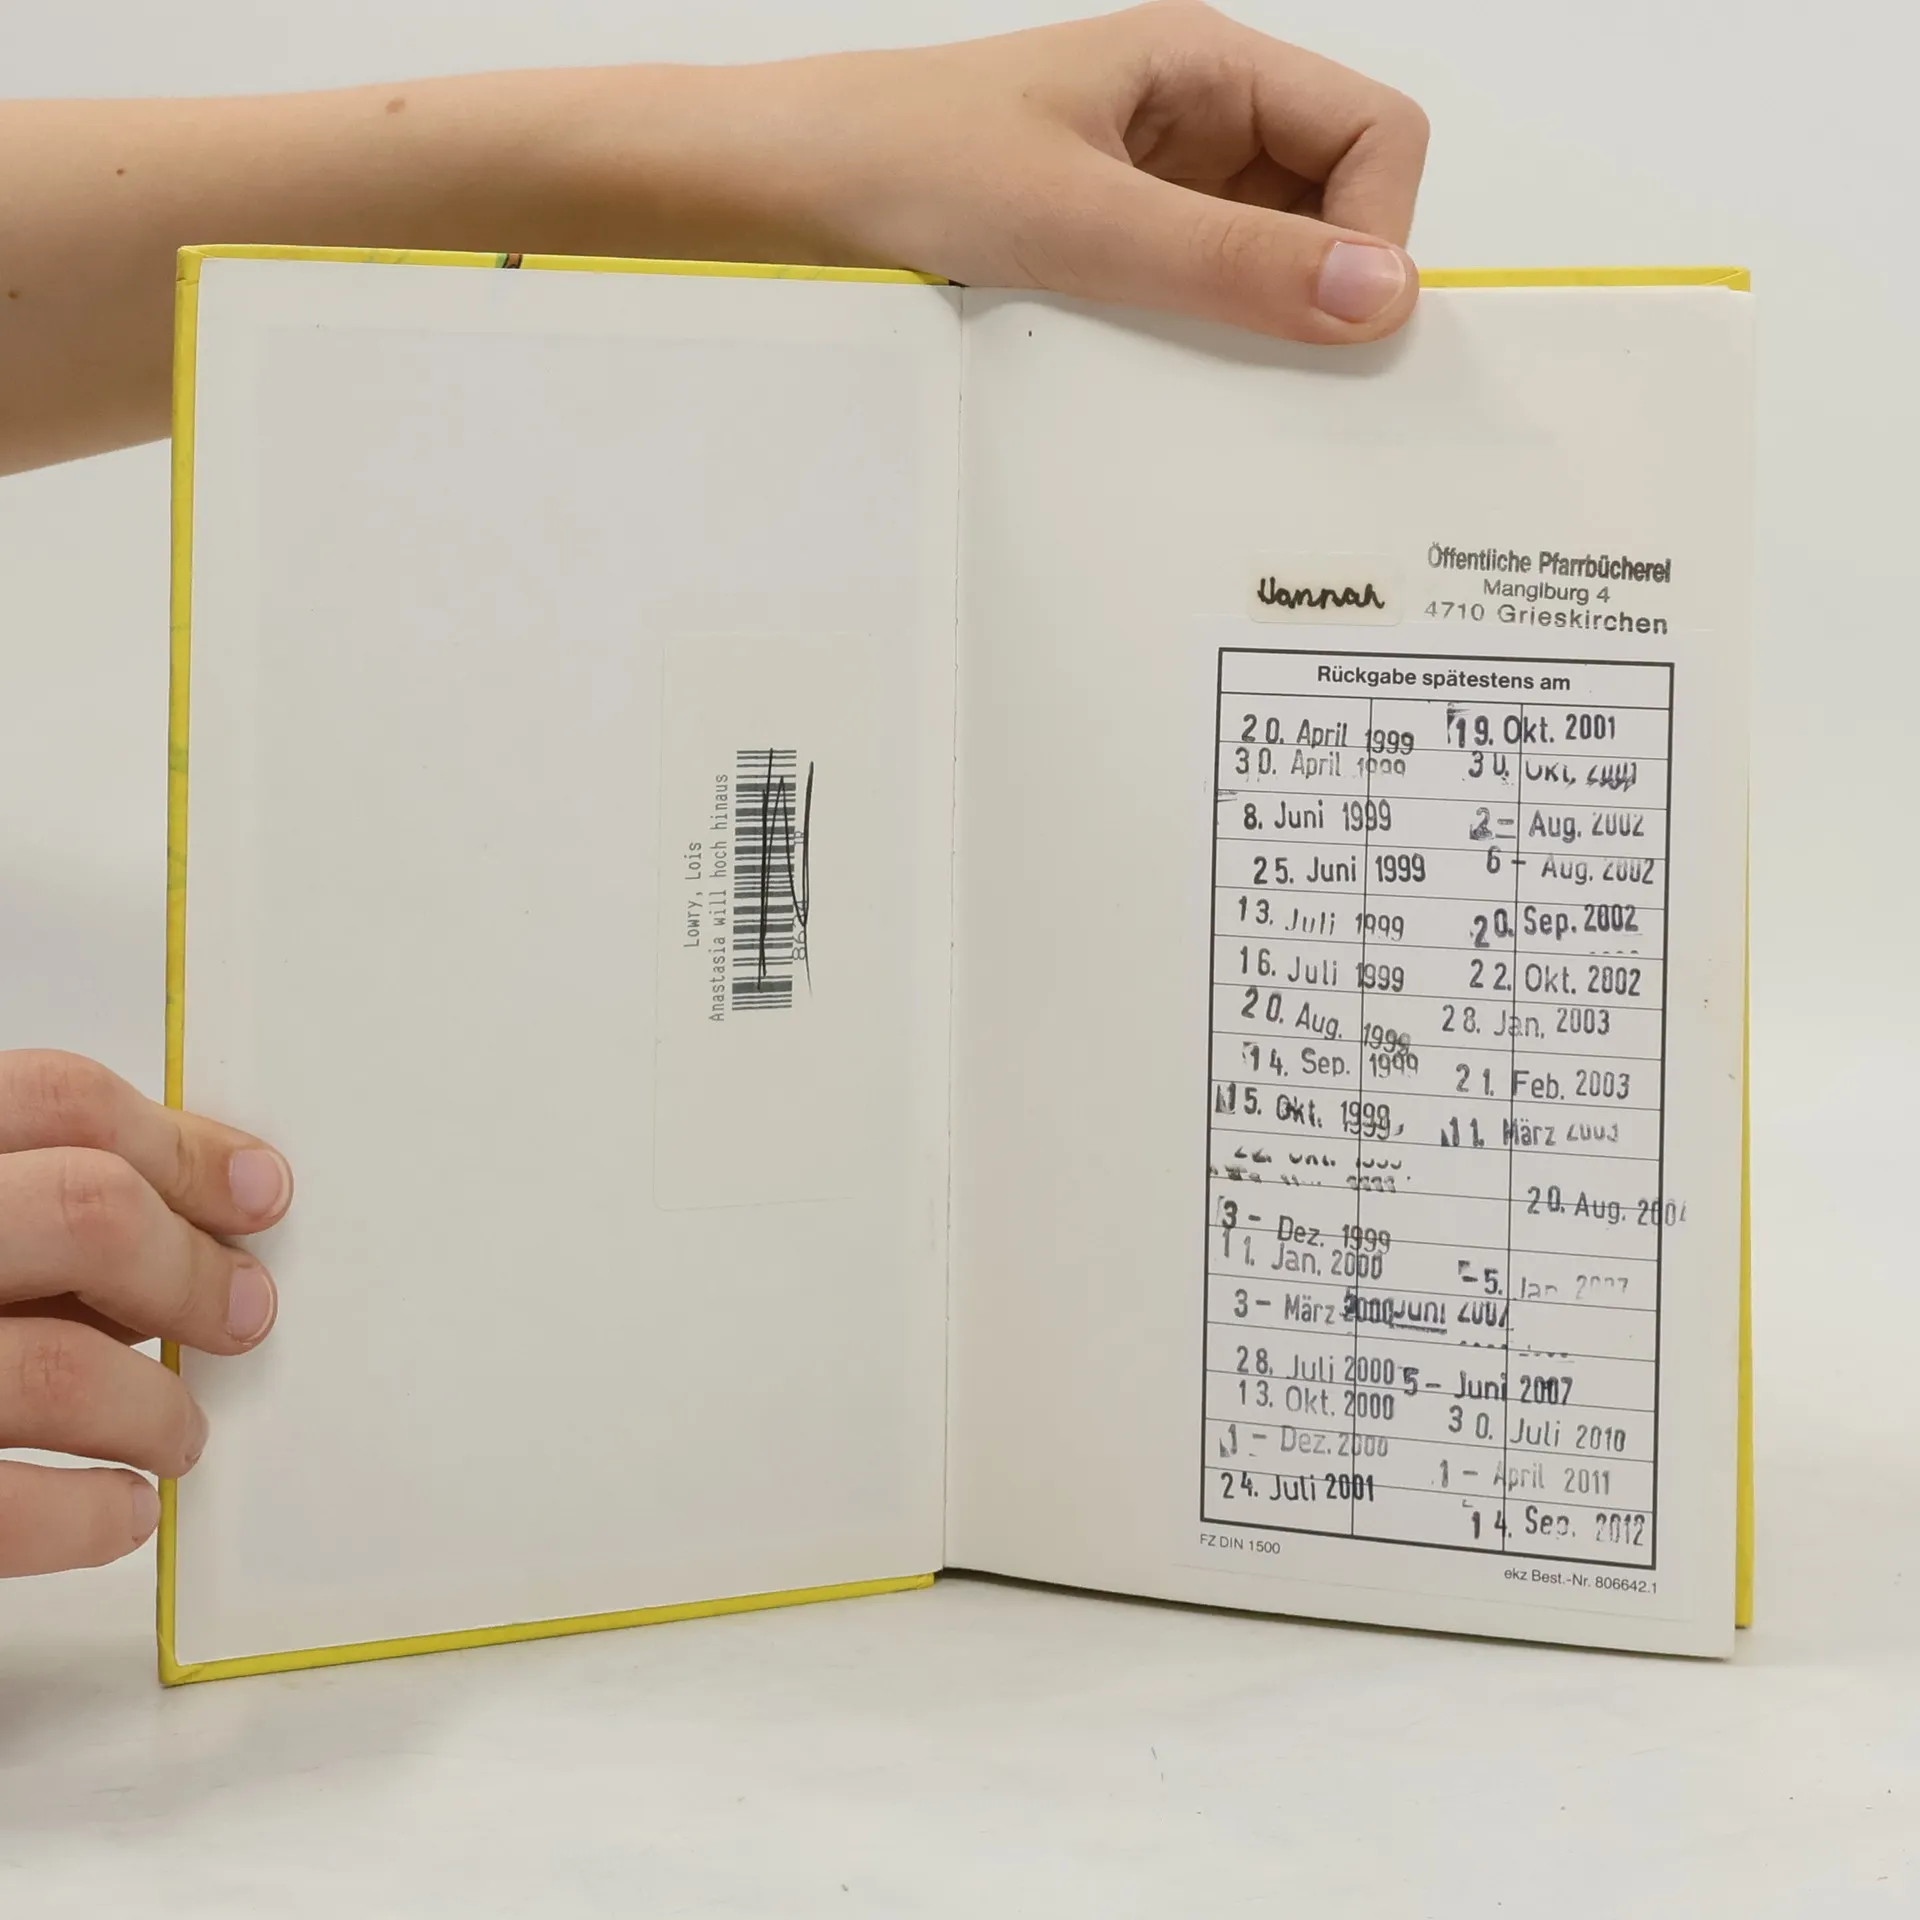 Lowry, Lois
Anastasia will hoch hinaus
Hannah
Öffentliche Pfarrbücherei
Manglburg 4
4710 Grieskirchen
Rückgabe spätestens am
20. April 1999
30. April 1999
8. Juni 1999
25. Juni 1999
13. Juli 1999
16. Juli 1999
20. Aug. 1999
14. Sep. 1999
15. Okt. 1999
3 - Dez. 1999
11. Jan. 2000
3 - März 2000
28. Juli 2000
13. Okt. 2000
1 - Dez. 2000
24. Juli 2001
19. Okt. 2001
30. Okt. 2001
2 - Aug. 2002
6 - Aug. 2002
20. Sep. 2002
22. Okt. 2002
28. Jan. 2003
21. Feb. 2003
11. März 2003
20. Aug. 2004
-5. Jan 2007
Juni 2007
5 - Juni 2007
30. Juli 2010
1 - April 2011
14. Sep. 2012
FZ DIN 1500
ekz Best.-Nr. 806642.1